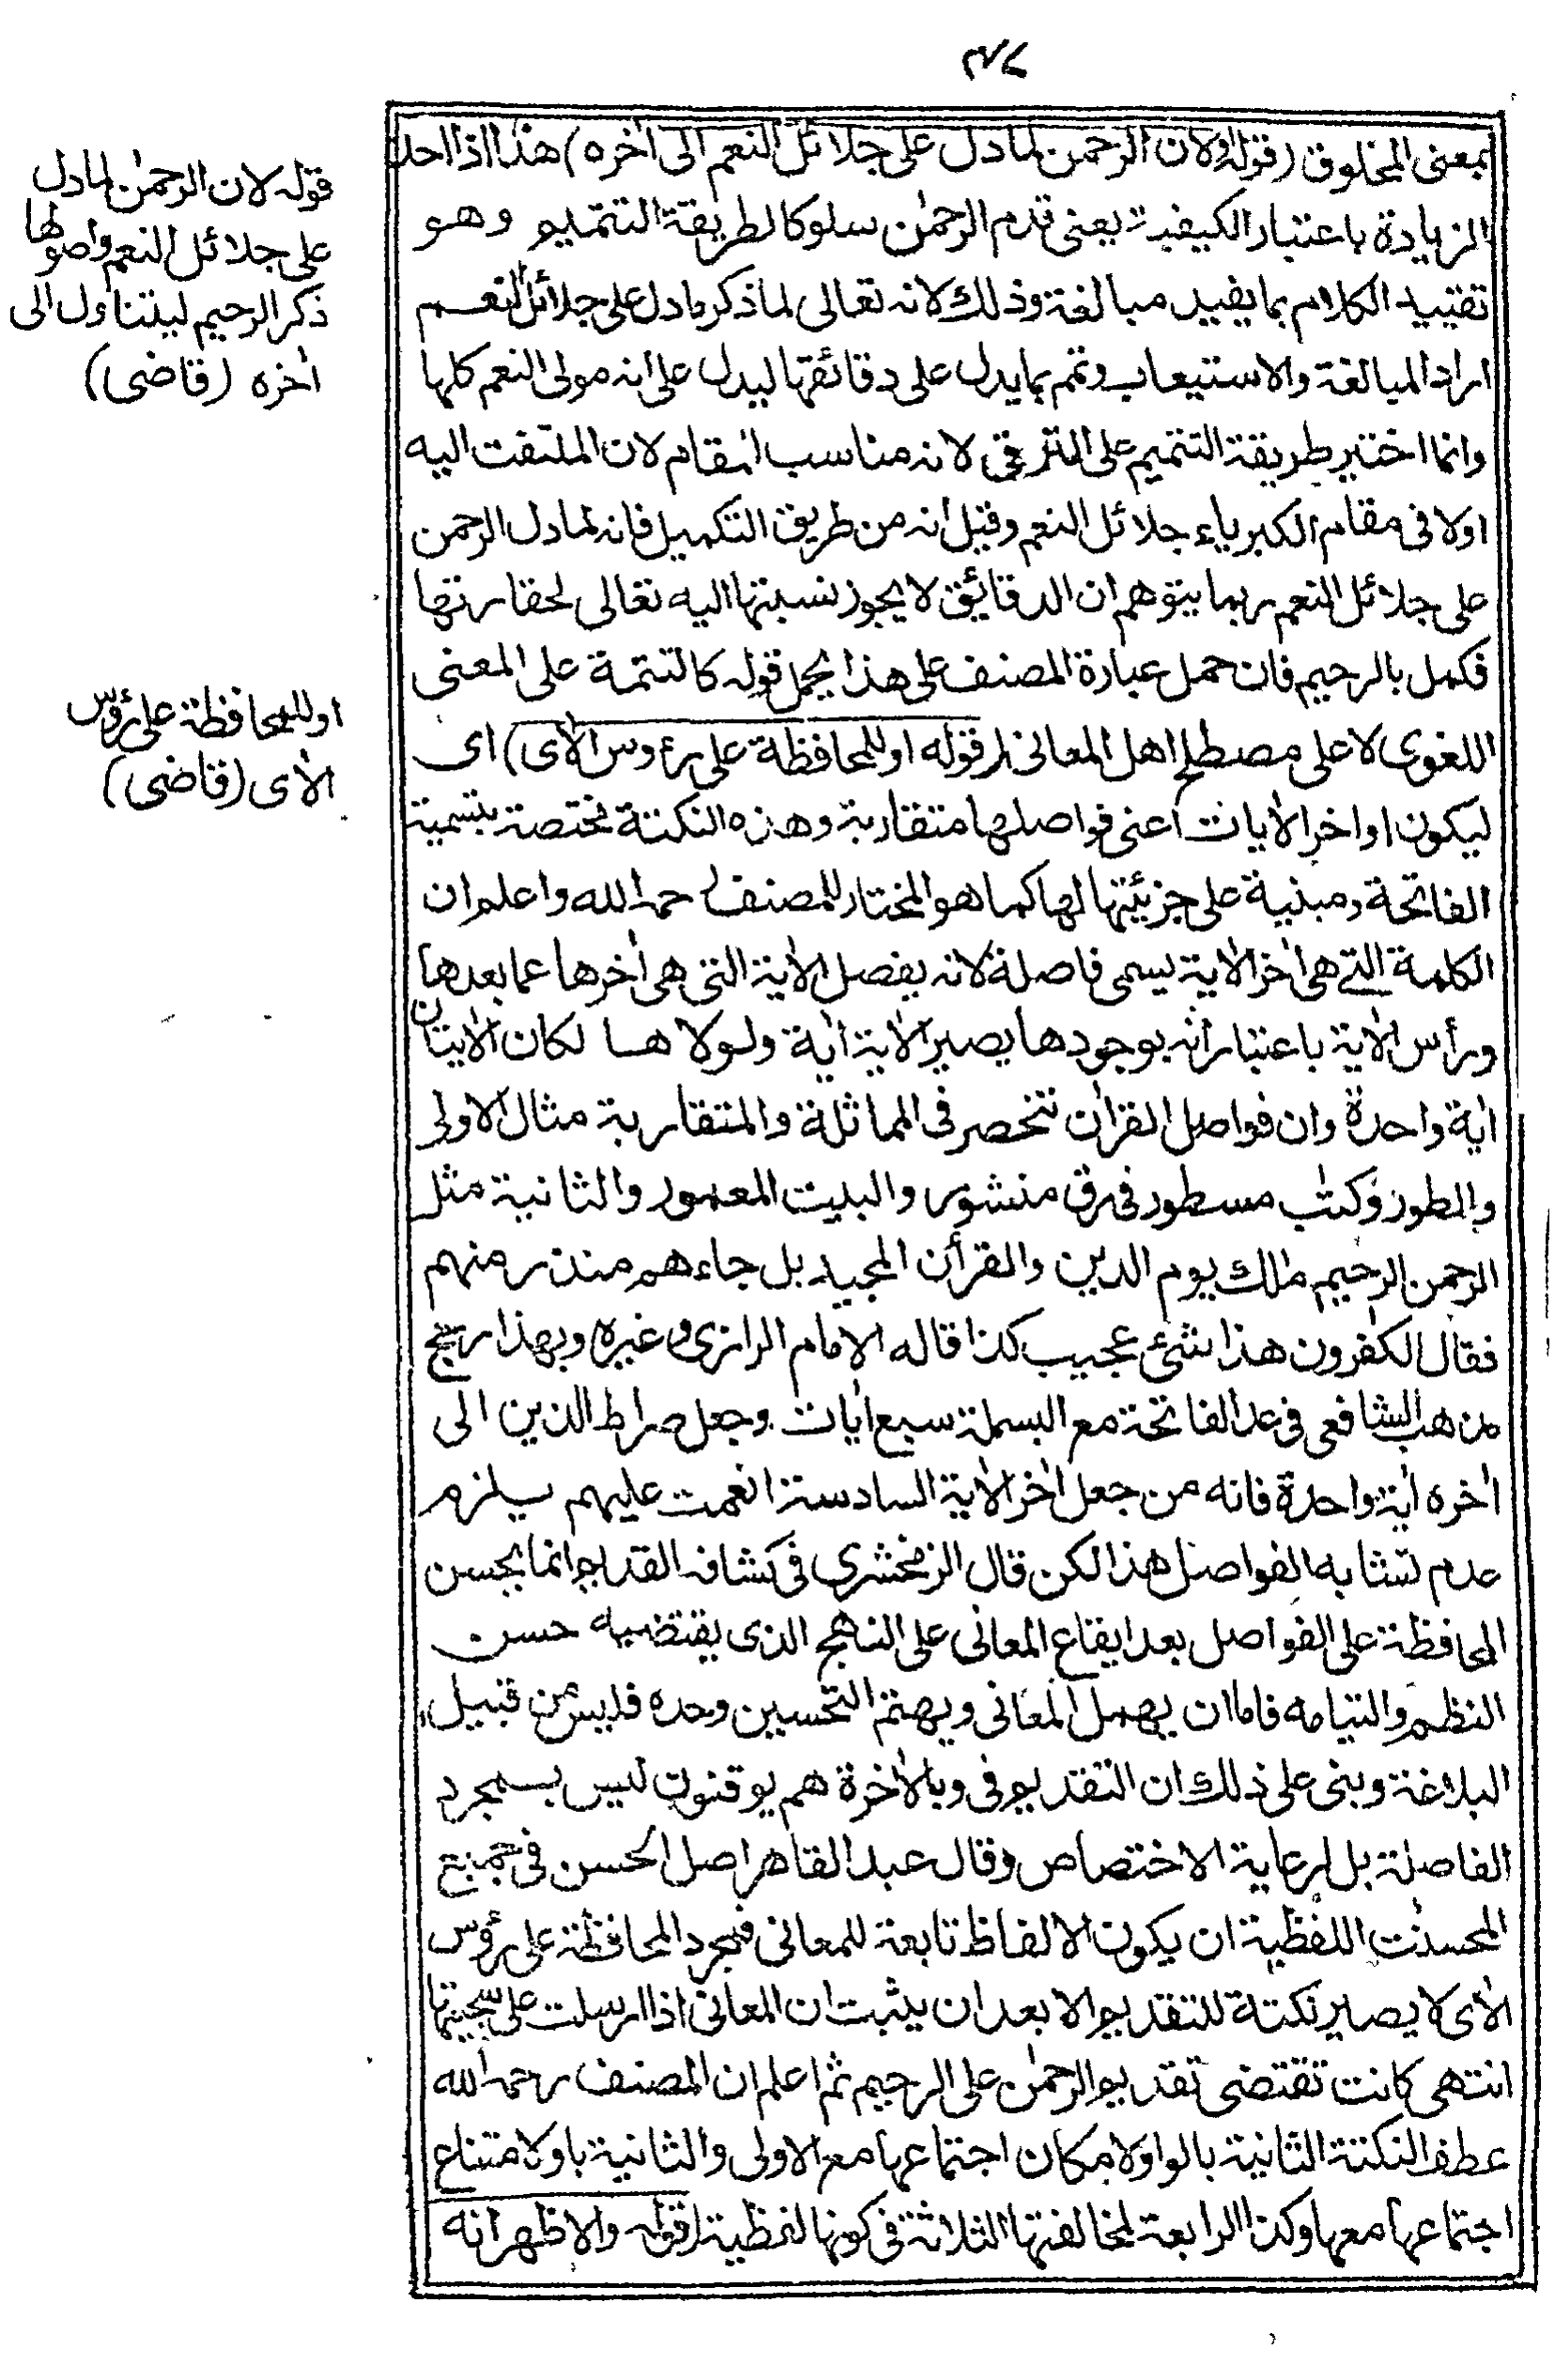 ٣٧
بمعنى المخلوق (قوله ولان الرحمن لمادل على جلائل النعم الى اٰخره) هذا اذا احذ
الزيادة باعتبار الكيفية يعنى قدم الرحمٰن سلوكا لطريقة التتميم وهو
تقييد الكلام بما يفيد مبالغة وذلك لانه تعالى لما ذكر مادل على جلائل النعم
اراد المبالغة والاستيعاب وتمم بما يدل على دقائقها ليدل على انه مولى النعم كلها
وانما اختير طريقة التتميم على الترقى لانه مناسب المقام لان الملتفت اليه
اولا فى مقام الكبرياء جلائل النعم وقيل انه من طريق التكميل فانه لمادل الرحمن
على جلائل النعم ربما يتوهم ان الدقائق لا يجوز نسبتها اليه تعالى لحقارتها
فكمل بالرحيم فان حمل عبارة المصنف على هذا يحمل قوله كالتتمة على المعنى
اللغوى لا على مصطلح اهل المعانى (قوله او للمحافظة على رءوس الاٰى) اى
ليكون اواخر الاٰيات اعنى فواصلها متقاربة وهذه النكتة مختصة بتسمية
الفاتحة ومبنية على جزئيتها لها كما هو المختار للمصنف رحمه الله واعلم ان
الكلمة التے هى اٰخر الاٰية يسمى فاصلة لانه يفصل الاٰية التى هى اٰخرها عما بعدها
ورأس الاٰية باعتبار انه بوجودها يصير الاٰية اٰية ولولاها لكان الاٰيتان
اٰية واحدة وان فواصل القراٰن تنحصر فى المماثلة والمتقاربة مثال الاولى
والطور وكتٰب مسطور فى رق منشور والبيت المعمور والثانية مثل
الرحمن الرحيم مٰلك يوم الدين والقرأن المجيد بل جاءهم منذر منهم
فقال الكٰفرون هذا شئ عجيب كذا قاله الامام الرازى وغيره وبهذا رجح
مذهب الشافعى فى عد الفاتحة مع البسملة سبع اٰيات وجعل صراط الذين الى
اٰخره اٰية واحدة فانه من جعل اٰخر الاٰية السادسة انعمت عليهم يلزم
عدم تشابه الفواصل هذا لكن قال الزمخشرى فى كشافه القديم انما يحسن
المحافظة على الفواصل بعد ايقاع المعانى على النهج الذى يقتضيه حسن
النظم والتيامه فاما ان يهمل المعانى ويهتم التحسين وحده فليس من قبيل
البلاغة وبنى على ذلك ان التقديم فى وبالاٰخرة هم يوقنون ليس بمجرد
الفاصلة بل لرعاية الاختصاص وقال عبد القاهر اصل الحسن فى جميع
المحسنٰت اللفظية ان يكون الالفاظ تابعة للمعانى فمجرد المحافظة على رؤس
الاٰى لا يصير نكتة للتقديم الا بعد ان يثبت ان المعانى اذا ارسلت على سجيتها
انتهى كانت تقتضى تقديم الرحمٰن على الرحيم ثم اعلم ان المصنف رحمه الله
عطف النكتة الثانية بالواو لامكان اجتماعها مع الاولى والثانية باو لامتناع
اجتماعها معها وكذا الرابعة لمخالفتها الثلاثة فى كونها لفظية (قوله والاظهر انه
قوله لان الرحمٰن لمادل
على جلائل النعم واصولها
ذكر الرحيم ليتناول الى
اٰخره (قاضى)
او للمحافظة على رؤس
الاٰى (قاضى)